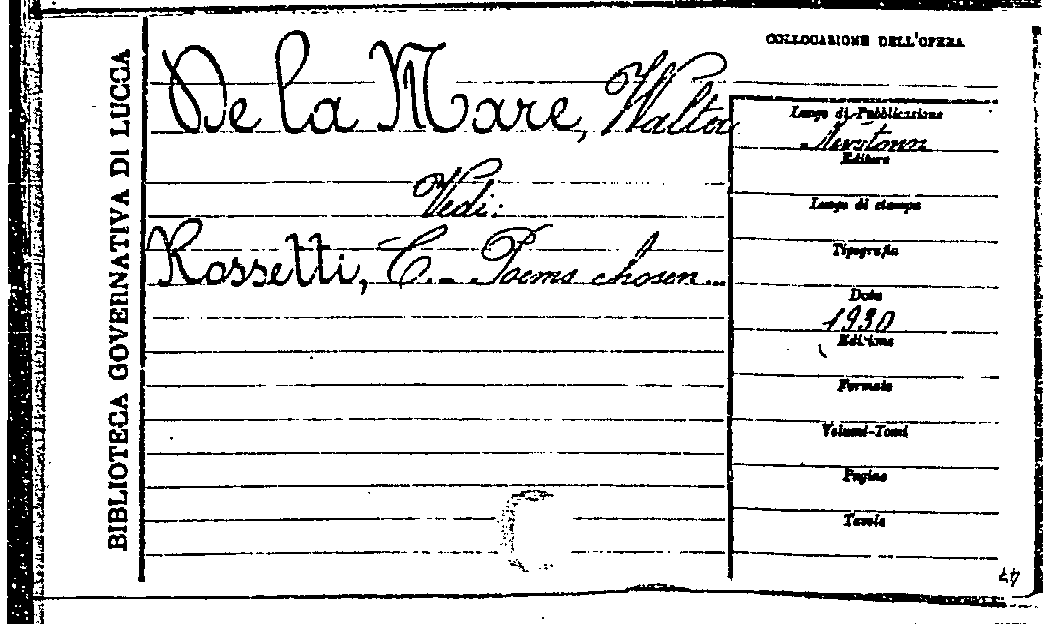 COLLOCAZIONE DELL'OPERA
BIBLIOTECA GOVERNATIVA DI LUCCA
De la Mare, Walter
Vedi:
Rossetti, C. - Poems chosen...
Luogo di Pubblicazione
Newtown
Editore
Luogo di stampa
Tipografia
Data
1930
Edizione
Formato
Volumi-Tomi
Pagine
Tavole
47